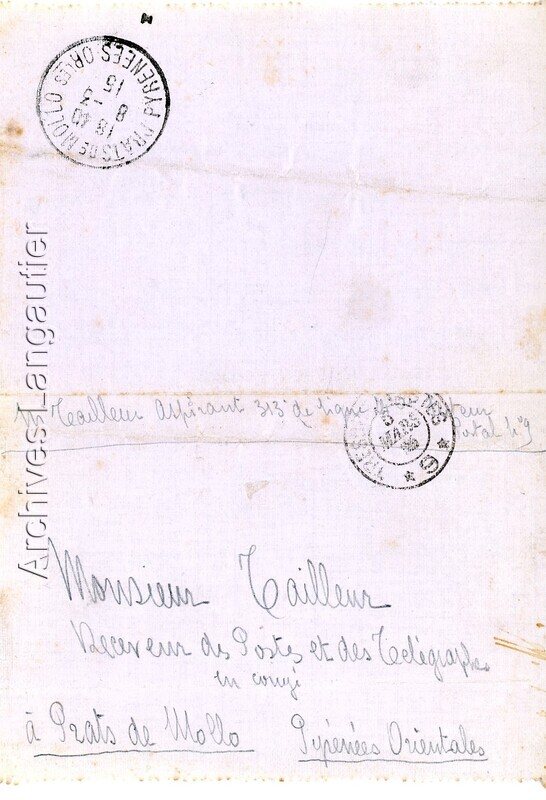 PRATS DE MOLLO PYRENEES ORLES
18 40
8 - 3
15
Archives Langautier
M Tailleur Aspirant 313e de ligne Secteur
Postal No 9
TRESOR ET POSTES * 9 *
5
MARS
Monsieur Tailleur
Receveur des Postes et des Telégraphes
en congé
à Prats de Mollo Pyrénées Orientales